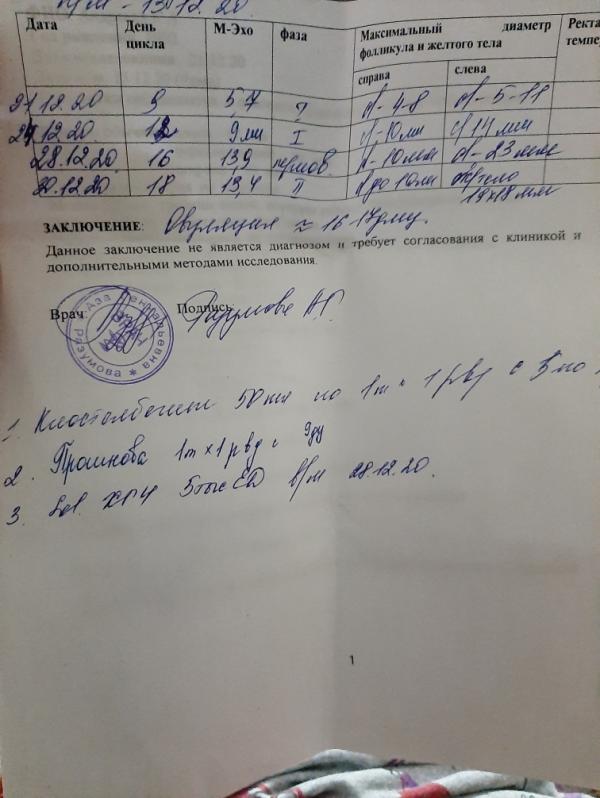 П/М - 13.12.20.
Дата День цикла М-Эхо фаза Максимальный диаметр фолликула и желтого тела
справа слева
21.12.20 9 5,7 I d- 4-8 d- 5-11
24.12.20 12 9 мм I d-10мм d 14 мм
28.12.20. 16 13,9 d-10мм d-23 мм
30.12.20 18 13,4 II d до 10мм ж. тело 19х18 мм
ЗАКЛЮЧЕНИЕ: Овуляция ≈ 16-17 дмц.
Данное заключение не является диагнозом и требует согласования с клиникой и
дополнительными методами исследования.
Врач Подпись: Разумова А.Г.
Аза Геннадьевна Разумова
1. Клостилбегит 50мг по 1т × 1 рвд с 5 по
2. Прогинова 1т × 1 рвд с 9дц
3. Sol. ХГЧ 5тыс ЕД в/м 28.12.20.
1